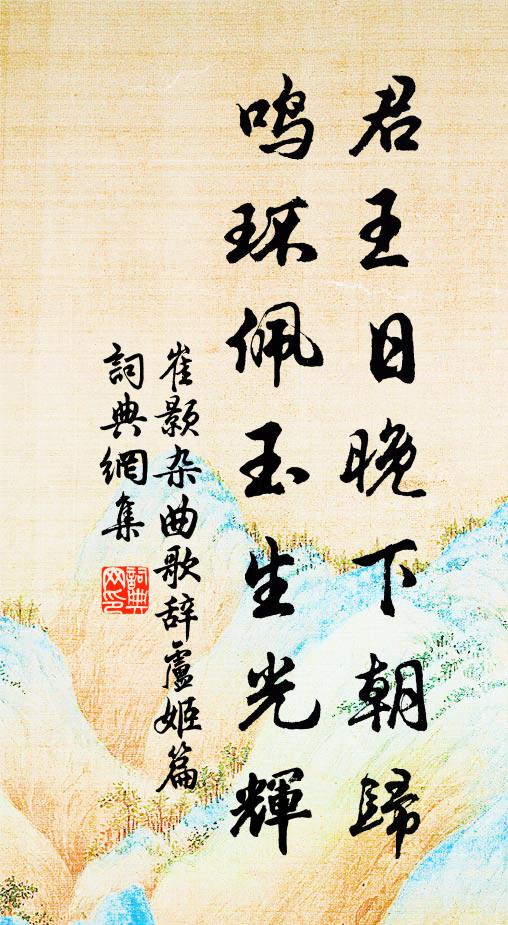 君王日晚下朝歸
鸣环佩玉生光輝
崔颢杂曲歌辞盧姬篇
詞典網集
詞典
网印